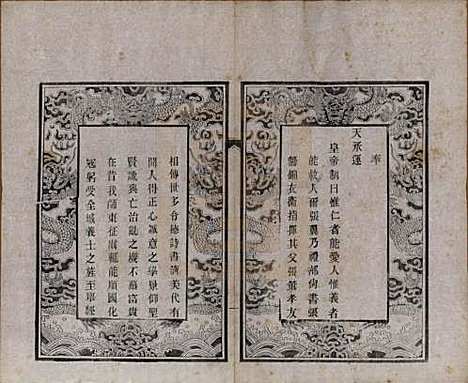 奉
天承運
皇帝制曰惟仁者能愛人惟義者
能救人爾張翼乃禮部尚書張
醫錦衣衛指揮其父張 孝友
相傳世多合德詩書濟美代有
聞人得正心誠意之學景仰聖
賢識興亡治亂之機不慕富貴
在昔我師東征肅 能順國化
冠躬受全城義士之旌至寧遠